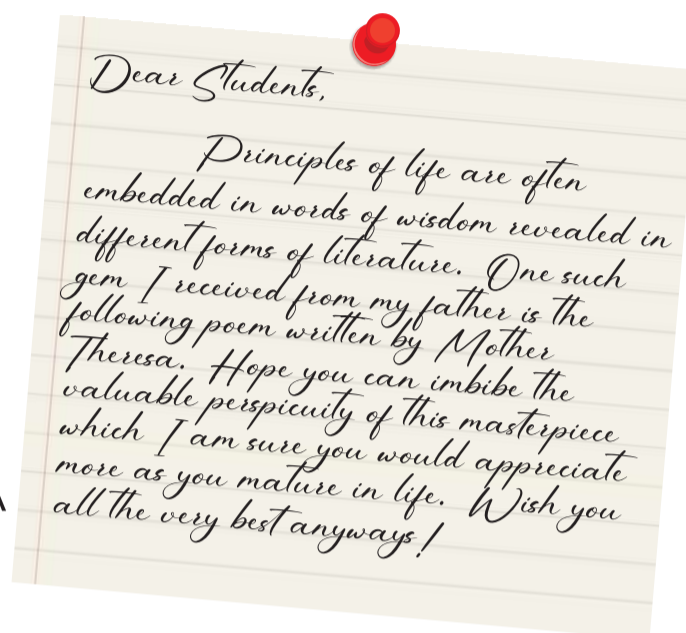 Dear Students,
Principles of life are often
embedded in words of wisdom revealed in
different forms of literature. One such
gem I received from my father is the
following poem written by Mother
Theresa. Hope you can imbibe the
valuable perspicuity of this masterpiece
which I am sure you would appreciate
more as you mature in life. Wish you
all the very best anyways!